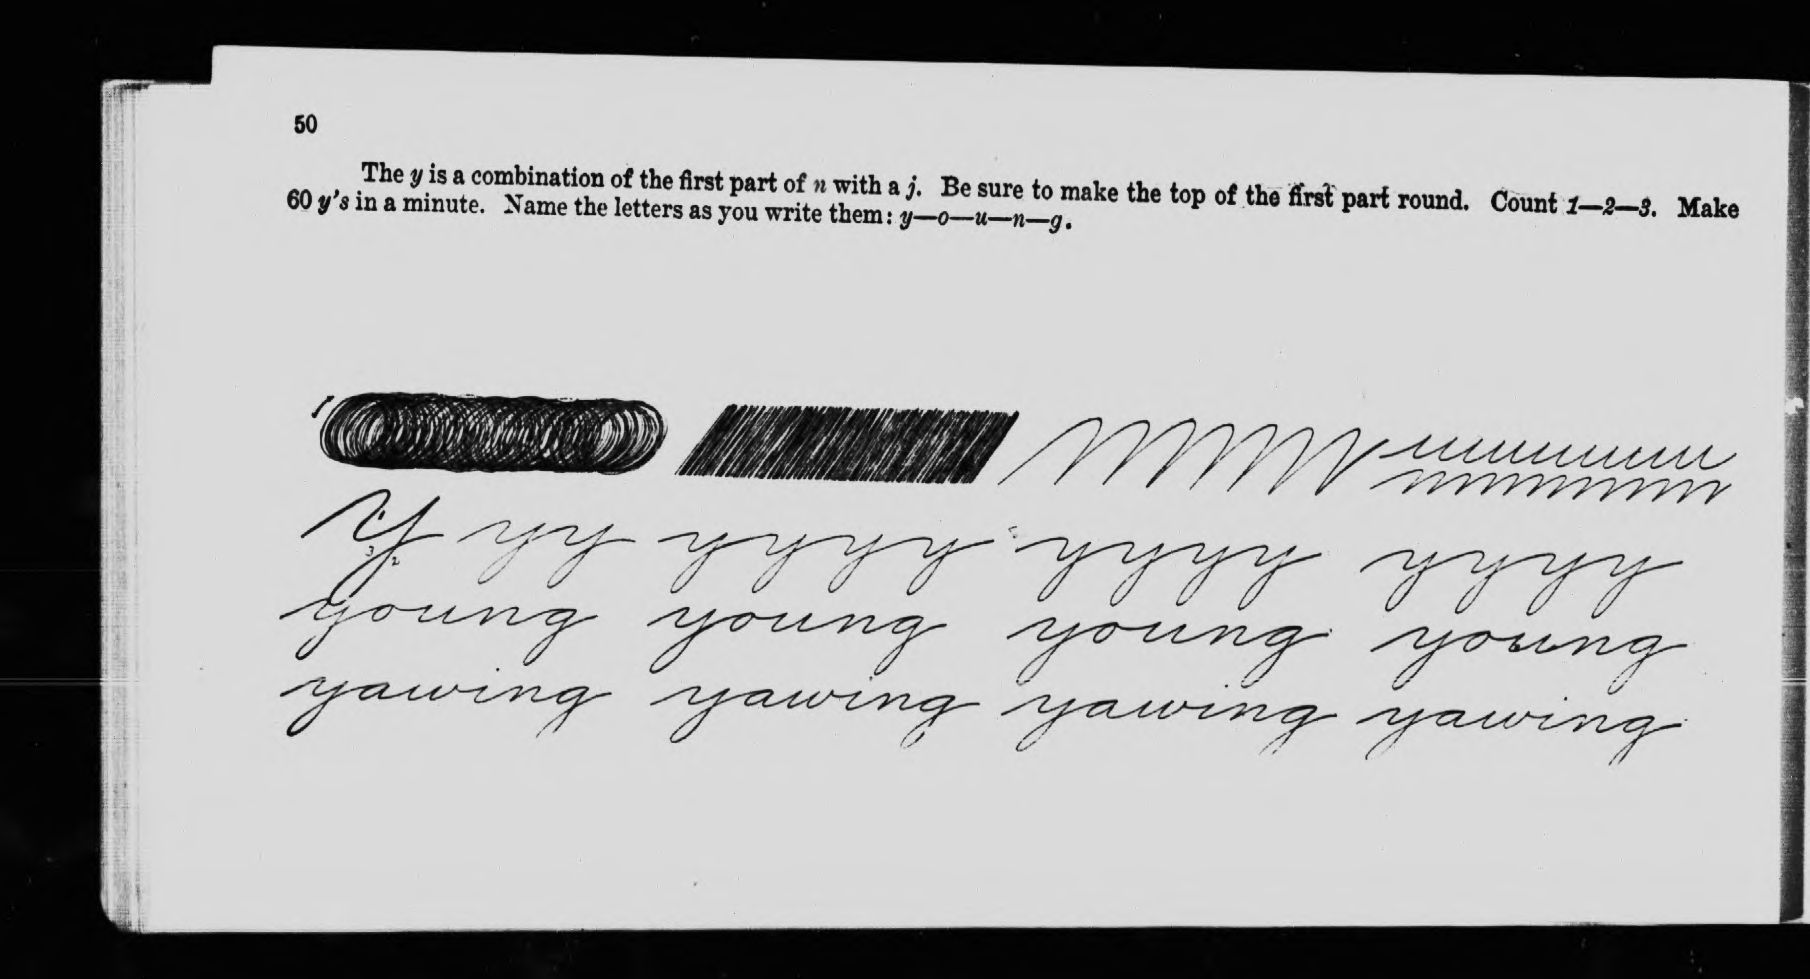 50
The y is a combination of the first part of n with a j. Be sure to make the top of the first part round. Count 1—2—3. Make
60 y's in a minute. Name the letters as you write them: y—o—u—n—g.
y y y y y y y y y y y y y y y
1
3 2
young young young young
yawing yawing yawing yawing